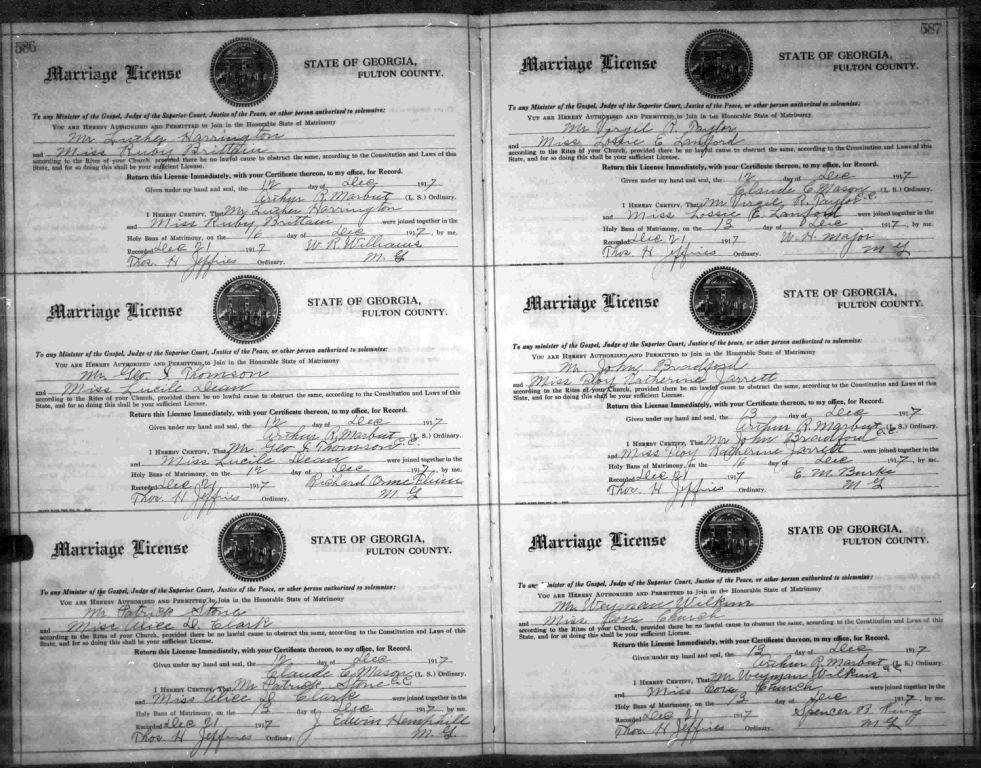 586
Marriage License
STATE OF GEORGIA,
FULTON COUNTY.
To any Minister of the Gospel, Judge of the Superior Court, Justice of the Peace, or other person authorized to solemnize:
YOU ARE HEREBY AUTHORIZED AND PERMITTED to Join in the Honorable State of Matrimony
Mr Luther Harrington
and Miss Ruby Brittain
according to the Rites of your Church, provided there be no lawful cause to obstruct the same, according to the Constitution and Laws of this
State, and for so doing this shall be your sufficient License.
Return this License Immediately, with your Certificate thereon, to my office, for Record.
Given under my hand and seal, the 12 day of Dec 1917
Arthur R. Marbut (L. S.) Ordinary.
I HEREBY CERTIFY, That Mr Luther Harrington
and Miss Ruby Brittain were joined together in the
Holy Bans of Matrimony, on the 16 day of Dec 1917, by me.
Recorded Dec 21 1917 W. R. Williams
Thos. H Jeffries Ordinary. M. G
Marriage License
STATE OF GEORGIA,
FULTON COUNTY.
To any Minister of the Gospel, Judge of the Superior Court, Justice of the Peace, or other person authorized to solemnize:
YOU ARE HEREBY AUTHORIZED AND PERMITTED to Join in the Honorable State of Matrimony
Mr. Geo. Thomson
and Miss Lucile Dean
according to the Rites of your Church, provided there be no lawful cause to obstruct the same, according to the Constitution and Laws of this
State, and for so doing this shall be your sufficient License.
Return this License Immediately, with your Certificate thereon, to my office, for Record.
Given under my hand and seal, the 12 day of Dec 1917
Arthur R. Marbut C.C. (L. S.) Ordinary.
I HEREBY CERTIFY, That Mr Geo Thomson
and Miss Lucile Dean were joined together in the
Holy Bans of Matrimony, on the 12 day of Dec 1917, by me.
Recorded Dec 21 1917 Richard Orme Flinn
Thos. H Jeffries Ordinary. M G
Marriage License
STATE OF GEORGIA,
FULTON COUNTY.
To any Minister of the Gospel, Judge of the Superior Court, Justice of the Peace, or other person authorized to solemnize:
YOU ARE HEREBY AUTHORIZED AND PERMITTED to Join in the Honorable State of Matrimony
Mr Patrick Stone
and Miss Alice D. Clark
according to the Rites of your Church, provided there be no lawful cause to obstruct the same, according to the Constitution and Laws of this
State, and for so doing this shall be your sufficient License.
Return this License Immediately, with your Certificate thereon, to my office, for Record.
Given under my hand and seal, the 12 day of Dec 1917
Claude C. Mason C.C. (L. S.) Ordinary.
I HEREBY CERTIFY, That Mr Patrick Stone
and Miss Alice D. Clark were joined together in the
Holy Bans of Matrimony, on the 13 day of Dec 1917, by me.
Recorded Dec 21 1917 J Edwin Hemphill
Thos. H Jeffries Ordinary. M. G
587
Marriage License
STATE OF GEORGIA,
FULTON COUNTY.
To any Minister of the Gospel, Judge of the Superior Court, Justice of the Peace, or other person authorized to solemnize:
YOU ARE HEREBY AUTHORIZED AND PERMITTED to Join in the Honorable State of Matrimony
Mr Virgil R. Taylor
and Miss Lossie E Lanford
according to the Rites of your Church, provided there be no lawful cause to obstruct the same, according to the Constitution and Laws of this
State, and for so doing this shall be your sufficient License.
Return this License Immediately, with your Certificate thereon, to my office, for Record.
Given under my hand and seal, the 12 day of Dec 1917
Claude C. Mason C.C. (L. S.) Ordinary.
I HEREBY CERTIFY, That Mr Virgil R. Taylor
and Miss Lossie E Lanford were joined together in the
Holy Bans of Matrimony, on the 13 day of Dec 1917, by me.
Recorded Dec 21 1917 W. H. Major
Thos. H Jeffries Ordinary. M G
Marriage License
STATE OF GEORGIA,
FULTON COUNTY.
To any minister of the Gospel, Judge of the Superior Court, Justice of the Peace, or other person authorized to solemnize:
YOU ARE HEREBY AUTHORIZED AND PERMITTED to Join in the Honorable State of Matrimony
Mr John Bradford
and Miss Katherine Jarrett
according to the Rites of your Church, provided there be no lawful cause to obstruct the same, according to the Constitution and Laws of this
State, and for so doing this shall be your sufficient License.
Return this License Immediately, with your Certificate thereon, to my office, for Record.
Given under my hand and seal, the 13 day of Dec 1917
Arthur R. Marbut C.C. (L. S.) Ordinary.
I HEREBY CERTIFY, That Mr John Bradford
and Miss Katherine Jarrett were joined together in the
Holy Bans of Matrimony, on the 16 day of Dec 1917, by me.
Recorded Dec 21 1917 E. M. Burks
Thos. H Jeffries Ordinary. M G
Marriage License
STATE OF GEORGIA,
FULTON COUNTY.
To any Minister of the Gospel, Judge of the Superior Court, Justice of the Peace, or other person authorized to solemnize:
YOU ARE HEREBY AUTHORIZED AND PERMITTED to Join in the Honorable State of Matrimony
Mr Weyman Wilkin
and Miss Cora Church
according to the Rites of your Church, provided there be no lawful cause to obstruct the same, according to the Constitution and Laws of this
State, and for so doing this shall be your sufficient License.
Return this License Immediately, with your Certificate thereon, to my office, for Record.
Given under my hand and seal, the 13 day of Dec 1917
Arthur R. Marbut (L. S.) Ordinary.
I HEREBY CERTIFY, That Mr Weyman Wilkin
and Miss Cora Church were joined together in the
Holy Bans of Matrimony, on the 13 day of Dec 1917, by me.
Recorded Dec 21 1917 Spencer B.
Thos. H Jeffries Ordinary. M G